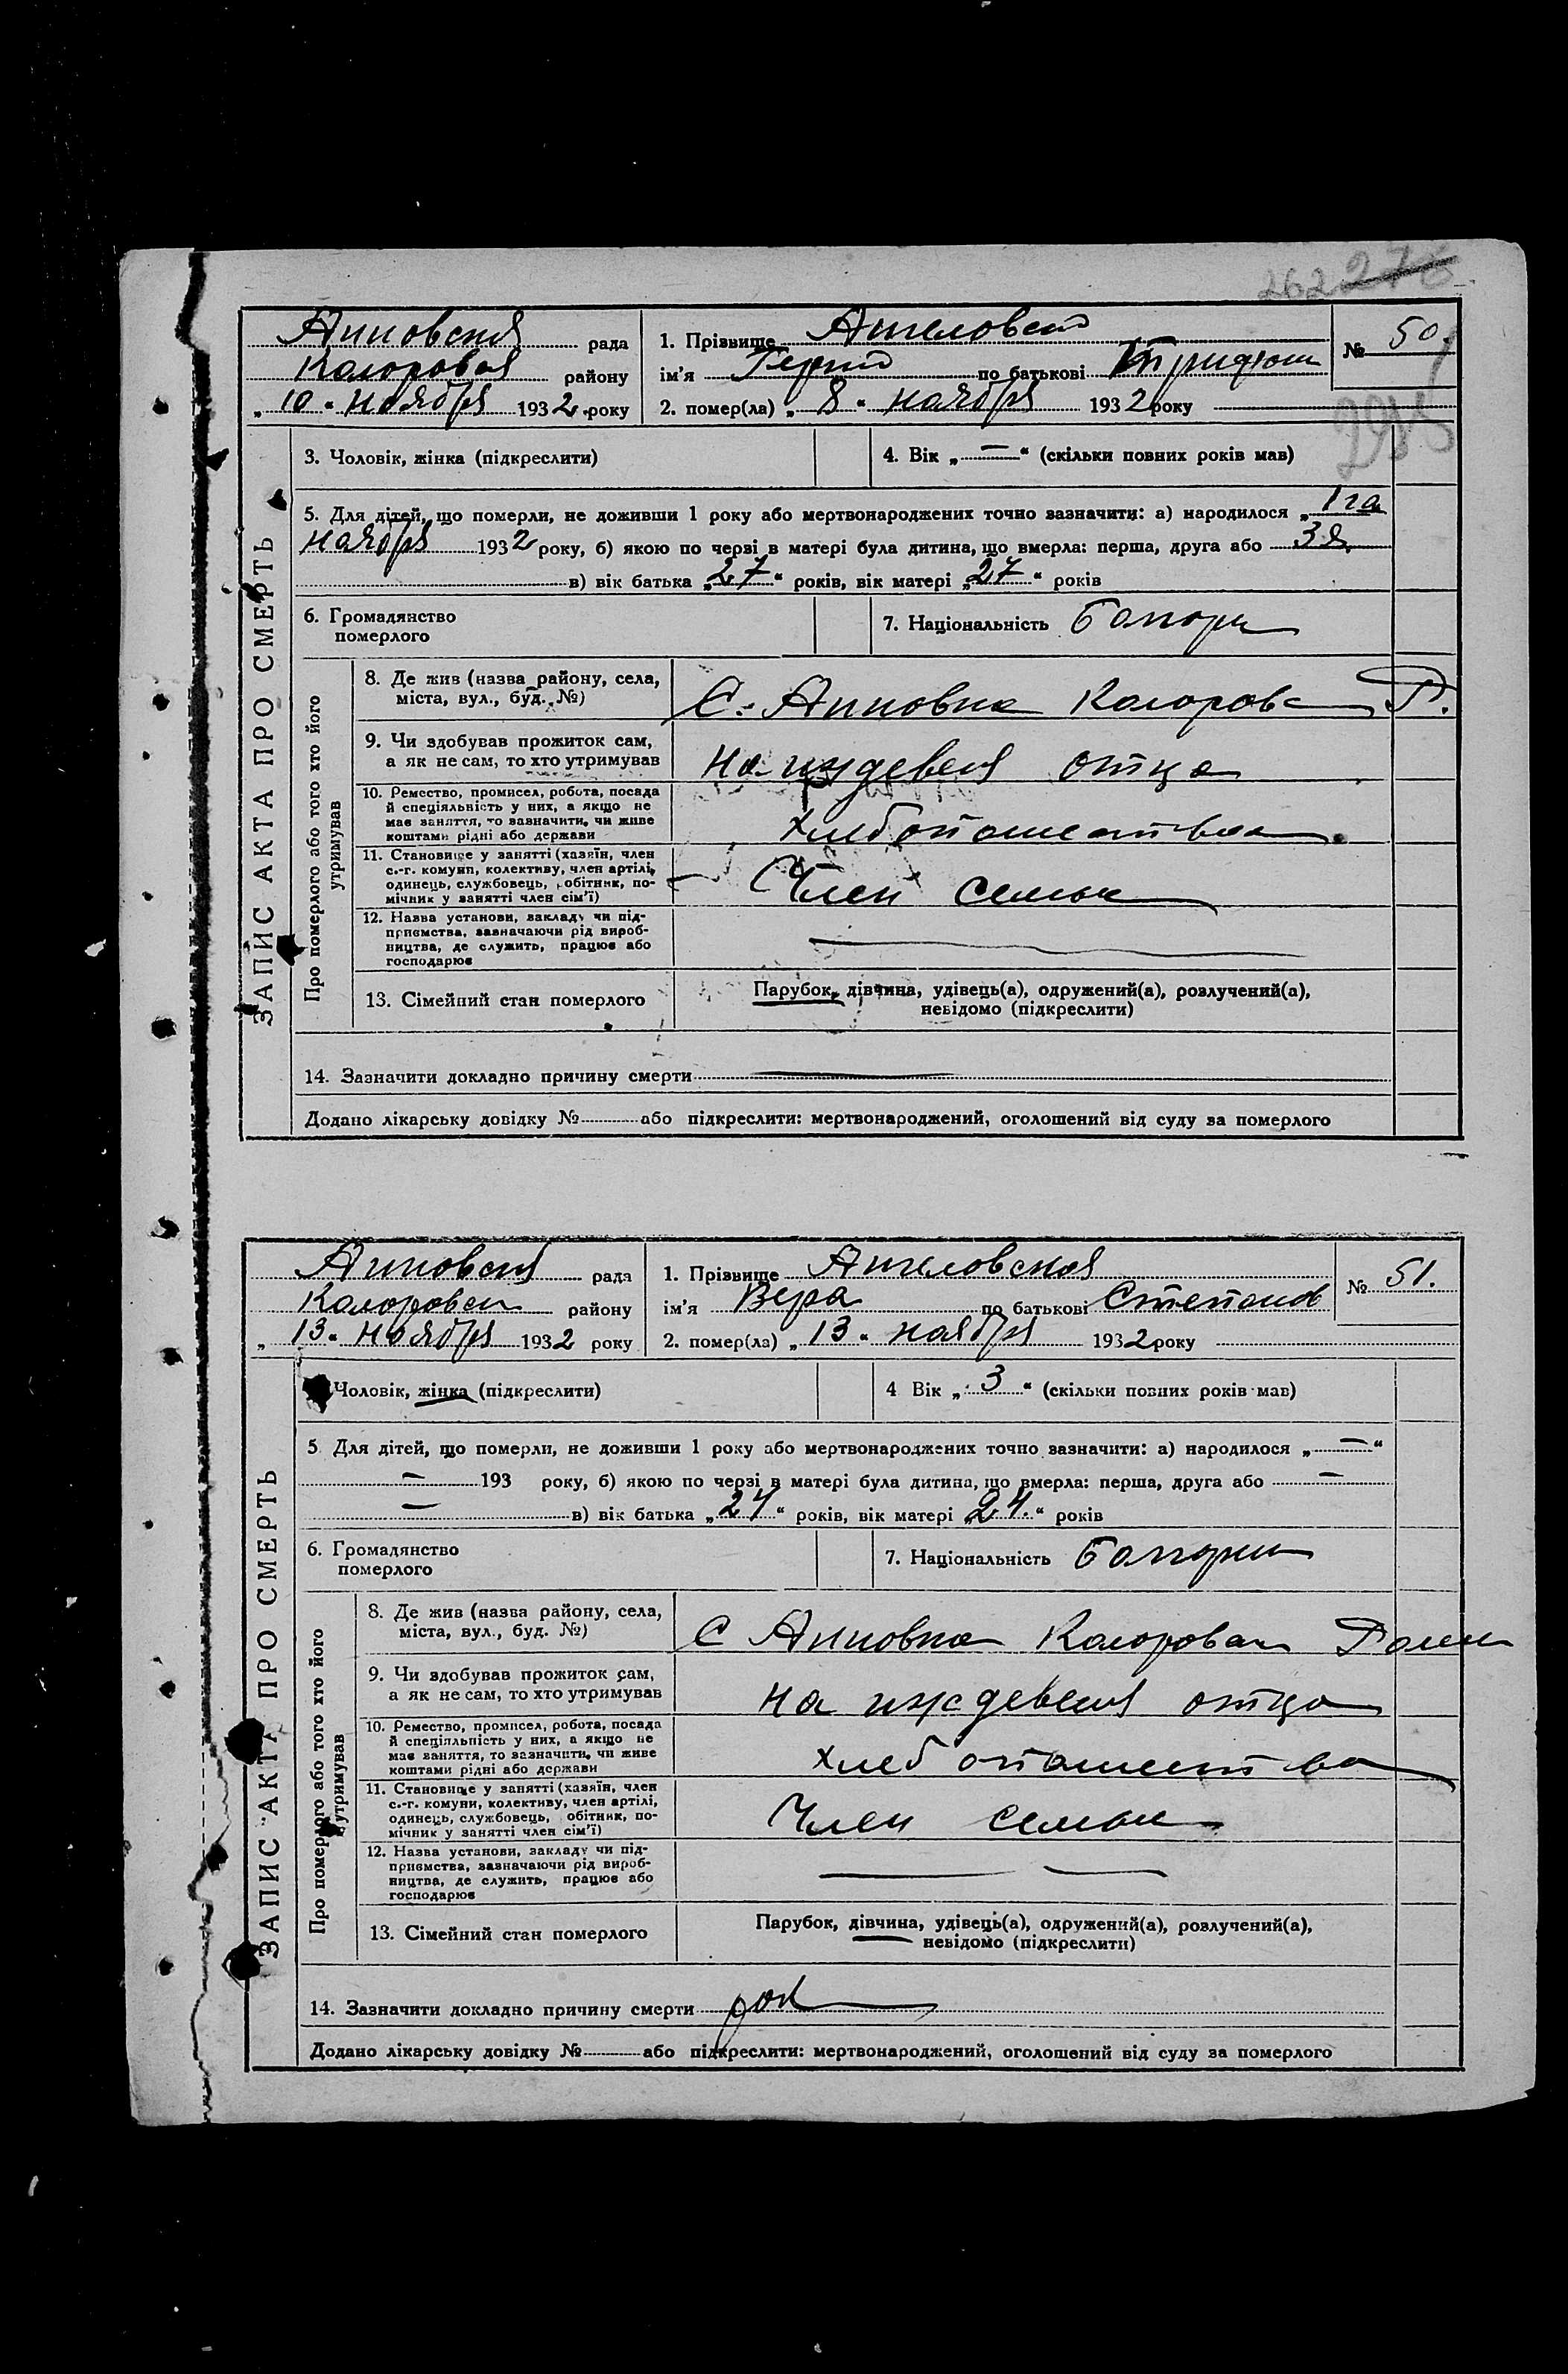 262 278
Анновская рада 1. Прізвище Ангеловский № 50.
района ім'я по батькові
„ 10 " ноября 1932 року 2. помер(ла) „ 8 " ноября 1932 року
295
3. Чоловік, жінка (підкреслити) 4. Вік „ — " (скільки повних років мав)
5. Для дітей, що померли, не доживши 1 року або мертвонароджених точно зазначити: а) народилося „ 1 го
ноября 1932 року, б) якою по черзі в матері була дитина, що вмерла: перша, друга або 3я
в) вік батька „ 27 " років, вік матері „ 27 " років
6. Громадянство 7. Національність
померлого
ЗАПИС АКТА ПРО СМЕРТЬ
Про померлого або того хто його
утримував
8. Де жив (назва району, села,
міста, вул., буд. №)
С. Анновка Р.
9. Чи здобував прожиток сам,
а як не сам, то хто утримував
На иждевеня отца
10. Ремество, промисел, робота, посада
й спеціяльність у них, а якщо не
має заняття, то зазначити, чи живе
коштами рідні або держави
хлебопашество
11. Становище у занятті (хазяїн, член
с.-г. комуни, колективу, член артілі,
одинець, службовець, робітник, по-
мічник у занятті член сім'ї)
Член семьи
12. Назва установи, закладу чи під-
приємства, зазначаючи рід вироб-
ництва, де служить, працює або
господарює
—
13. Сімейний стан померлого
Парубок, дівчина, удівець(а), одружений(а), розлучений(а),
невідомо (підкреслити)
14. Зазначити докладно причину смерти —
Додано лікарську довідку № або підкреслити: мертвонароджений, оголошений від суду за померлого
Анновская рада 1. Прізвище Ангеловская № 51.
району ім'я Вера по батькові Степанов
„ 13 " ноября 1932 року 2. помер(ла) „ 13 " ноября 1932 року
Чоловік, жінка (підкреслити) 4 Вік „ 3 " (скільки повних років мав)
5 Для дітей, що померли, не доживши 1 року або мертвонароджених точно зазначити: а) народилося „ — "
— 193 року, б) якою по черзі в матері була дитина, що вмерла: перша, друга або —
— в) вік батька „ 24 " років, вік матері „ 24. " років
6. Громадянство 7. Національність
померлого
ЗАПИС АКТА ПРО СМЕРТЬ
Про померлого або того хто його
утримував
8. Де жив (назва району, села,
міста, вул., буд. №)
С Анновка
9. Чи здобував прожиток сам,
а як не сам, то хто утримував
на иждевеня отца
10. Ремество, промисел, робота, посада
й спеціяльність у них, а якщо не
має заняття, то зазначити, чи живе
коштами рідні або держави
хлебопашество
11. Становище у занятті (хазяїн, член
с.-г. комуни, колективу, член артілі,
одинець, службовець, обітник, по-
мічник у занятті член сім'ї)
Член семьи
12. Назва установи, закладу чи під-
приємства, зазначаючи рід вироб-
ництва, де служить, працює або
господарює
— —
13. Сімейний стан померлого
Парубок, дівчина, удівець(а), одружений(а), розлучений(а),
невідомо (підкреслити)
14. Зазначити докладно причину смерти
Додано лікарську довідку № або підкреслити: мертвонароджений, оголошений від суду за померлого